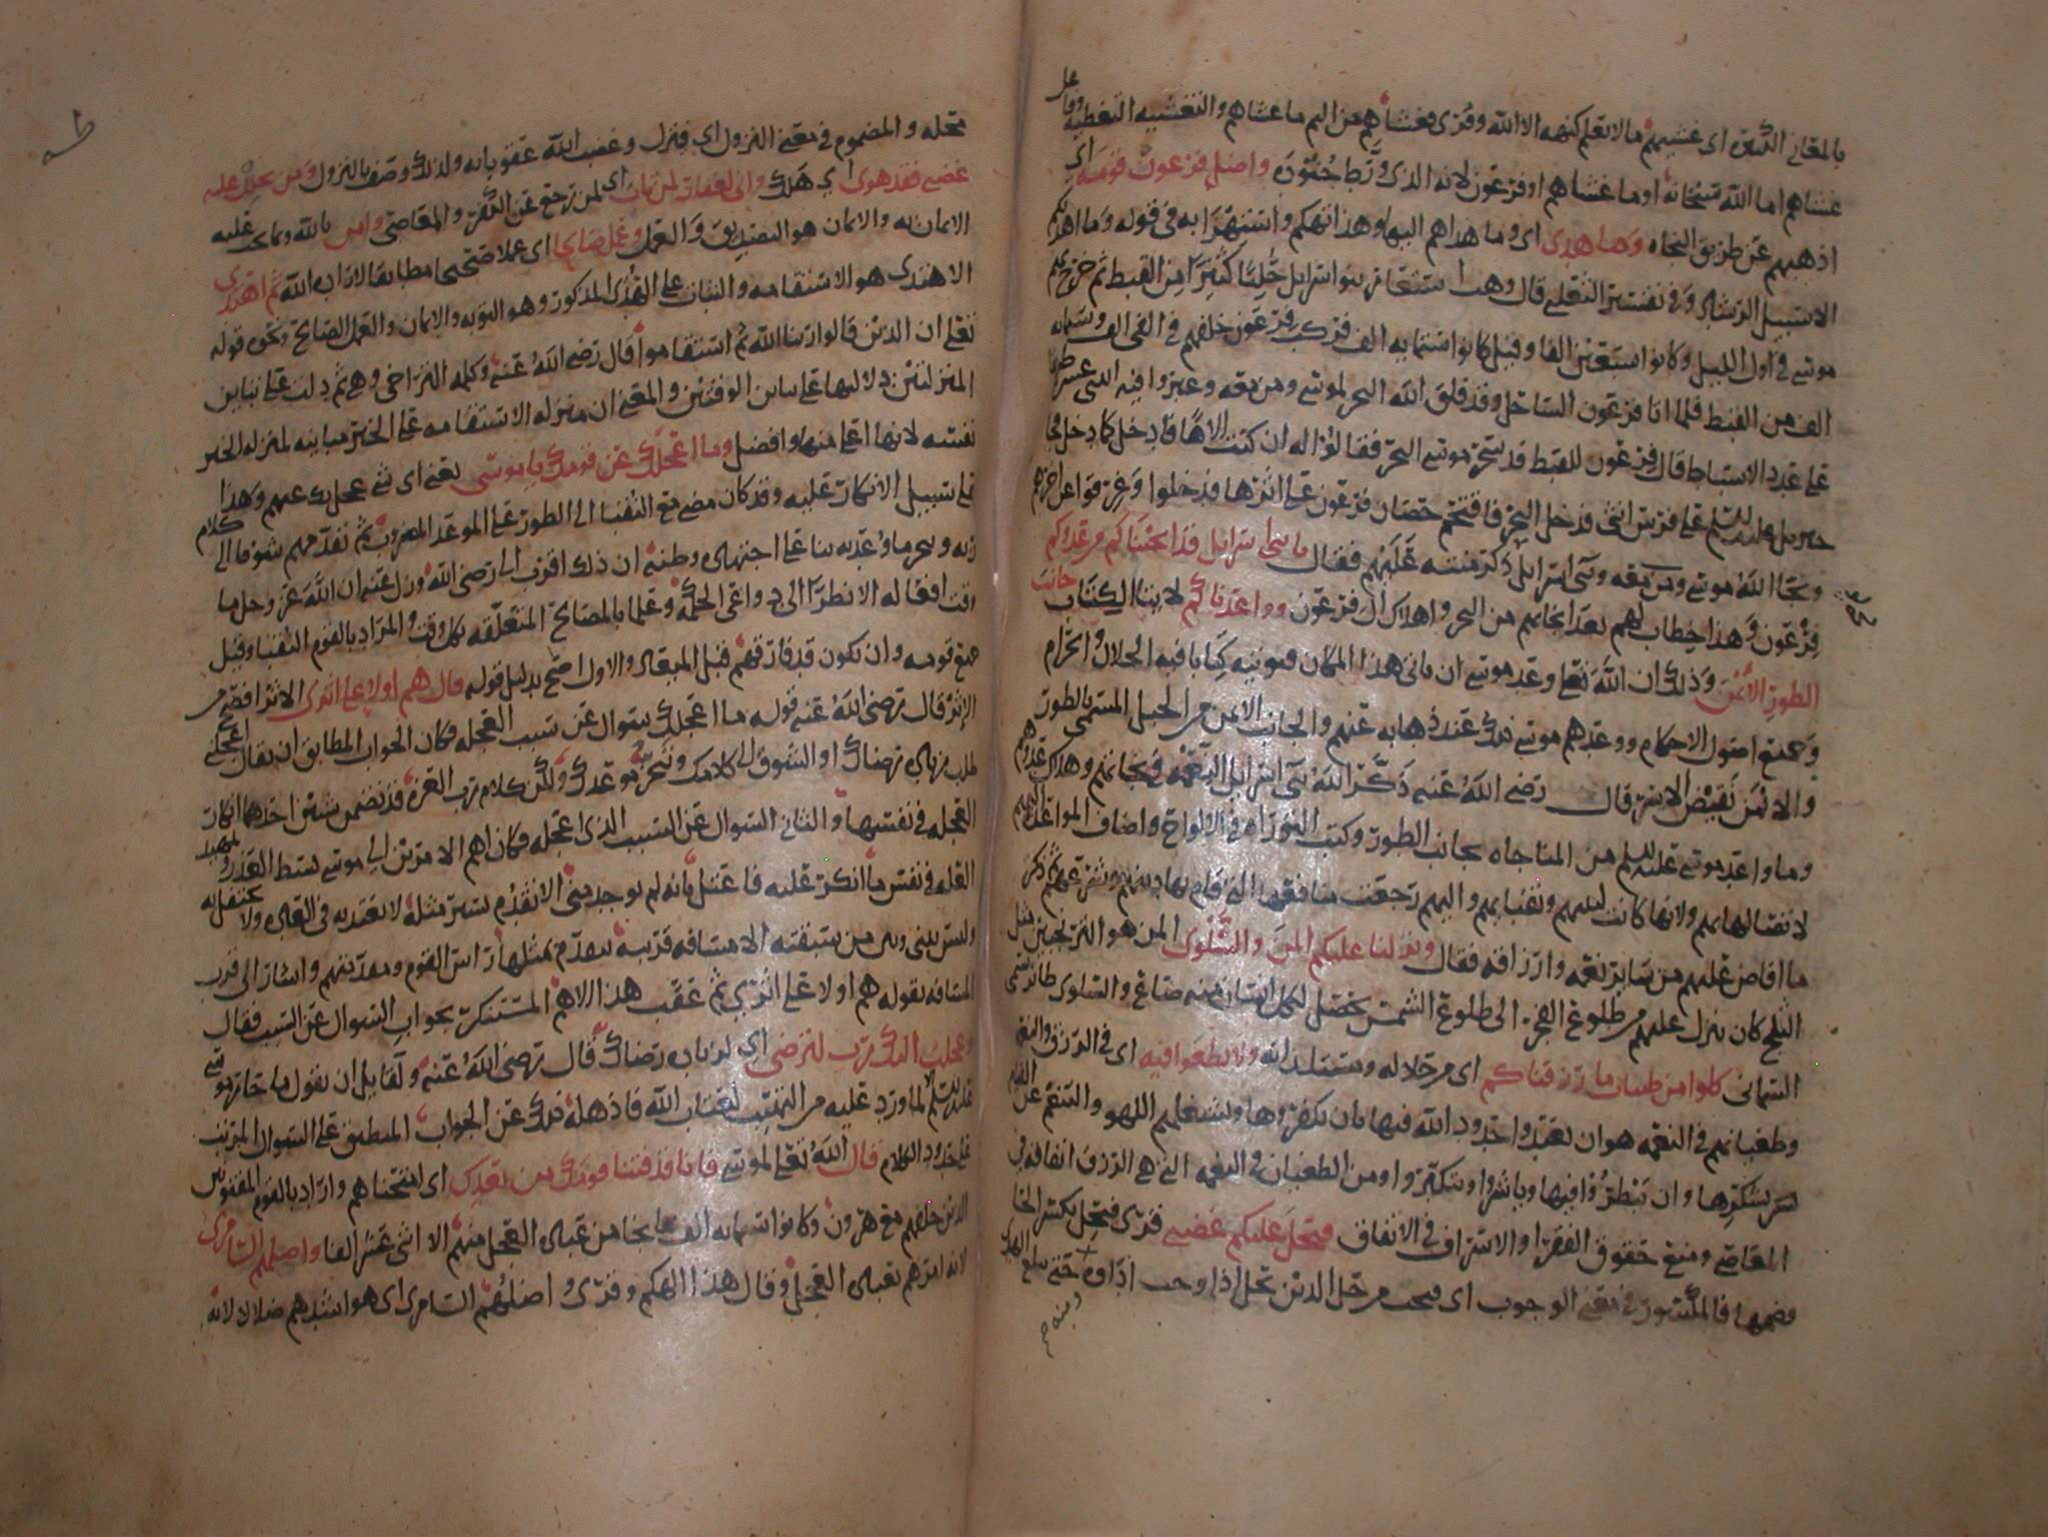 بالمعاني الكثيرة اي غشيهم ما لا يعلم كنهه الا الله وقرى فغشاهم من اليم ما غشاهم والتغشيه التغطيه وفاعل
غشاهم اما الله سبحانه او ما غشاهم او فرعون لانه الذي ورط جنوده واضل فرعون قومه اي
اذهبهم عن طريق النجاه وما هدى اي وما هداهم اليها وهذا تهكم واستهزا به في قوله وما اهديكم
الا سبيل الرشاد وفي تفسير الثعلبي قال وهب استعار بنو اسرايل حليا كثيرا من القبط ثم خرج بهم
موسى في اول الليل وكانوا سبعين الفا وقيل كانوا ستمايه الف فركب فرعون خلفهم في الفي الف وستمايه
الف من القبط فلما اتا فرعون الساحل وقد فلق الله البحر لموسى ومن معه وعبروا فيه اثني عشر طريقا
على عدد الاسباط قال فرعون للقبط قد سحر موسى البحر فقالوا له ان كنت الاها فادخل كما دخل فجا
جبريل عليه السلم على فرس انثى فدخل البحر فاقتحم حصان فرعون على اثرها فدخلوا وغرقوا عن اخرهم
ونجا الله موسى ومن معه وبني اسرايل ذكر مننه عليهم فقال يا بني اسرايل قد انجيناكم من عدوكم
فرعون وهذا خطاب لهم بعد انجايهم من البحر واهلاك ال فرعون وواعدناكم لاتينا الكتاب جانب
الطور الايمن وذلك ان الله تعلى وعد موسى ان ياتي هذا المكان فيوتيه كتابا فيه الحلال والحرام
وجميع اصول الاحكام ووعدهم موسى ذلك عند ذهابه عنهم والجانب الايمن من الجبل المسمى بالطور
والايمن نقيض الايسر قال رضي الله عنه ذكر الله بني اسرايل النعمه في نجاتهم وهلاك عدوهم
وما واعد موسى عليه السلم من المناجاه بجانب الطور وكتب التوراه في الالواح واضاف المواعده اليهم
لاتصالها بهم ولانها كانت لنبيهم ونقبايهم واليهم رجعت منافعها التي قام بها دينهم وشرعهم ثم ذكر
ما افاض عليهم من ساير نعمه وارزاقه فقال ونزلنا عليكم المن والسلوى المن هو الترنجبين مثل
الثلج كان ينزل عليهم من طلوع الفجر الى طلوع الشمس يحصل لكل انسان منه صاع والسلوى طائر يسمى
السمانى كلوا من طيبات ما رزقناكم اي من حلاله ومستلذاته ولا تطغوا فيه اي في الرزق والنعم
وطغيانهم في النعمه هو ان يتعدوا حدود الله فيها بان يكفروها ويشغلهم اللهو والتنعم عن القيام
بشكرها وان يبطروا فيها وياشروا ويتكبروا ومن الطغيان في النعمه التي هي الرزق انفاقه في
المعاصي ومنع حقوق الفقرا والاسراف في الانفاق فيحل عليكم غضبي قرى فيحل بكسر الحا
وضمها فالمكسور في معنى الوجوب اي فيجب من حل الدين يحل اذا وجب اداوه حتى يبلغ الهدي
ومنه
محله والمضموم في معنى النزول اي فينزل وغضب الله عقوباته ولذلك وصف بالنزول ومن يحلل عليه
غضبي فقد هوى اي هلك واني لغفار لمن تاب اي لمن رجع عن الكفر والمعاصي وامن بالله وبما يجب عليه
الايمان به والايمان هو التصديق والعمل وعمل صالحا اي عملا صحيحا مطابقا لاداب الله ثم اهتدى
الاهتدى هو الاستقامه والثبات على الهدى المذكور وهو التوبه والايمان والعمل الصالح ونحوه قوله
تعلى ان الذين قالوا ربنا الله ثم استقاموا قال رضي الله عنه وكلمه التراخي وهي ثم دلت على تباين
المنزلتين دلالتها على تباين الوقتين والمعنى ان منزله الاستقامه على الخير مباينه لمنزله الخير
نفسه لانها اعلى منها وافضل وما اعجلك عن قومك يا موسى يعني اي شي عجل بك عنهم وهذا
على سبيل الانكار عليه وقد كان مضى مع النقبا الى الطور على الموعد المضروب ثم تقدمهم شوقا الى كلام
ربه وتنجز ما وعد به بنا على اجتهاده وظنه ان ذلك اقرب الى رضى الله وزل عنه ان الله عز وجل ما
وقت افعاله الا نظرا الى دواعي الحكمه وعلما بالمصالح المتعلقه بكل وقت والمراد بالقوم النقبا وقيل
جميع قومه وان يكون قد فارقهم قبل الميعاد والاول اصح بدليل قوله قال هم اولاء على اثري الاثر افصح من
الإثر قال رضي الله عنه قوله ما اعجلك سوال عن سبب العجله فكان الجواب المطابق ان يقال اعجلني
طلب زياده رضاك او الشوق الى كلامك وتنجز موعدك ولكن كلام رب العزه قد تضمن شيئين احدهما انكار
العجله في نفسها والثاني السوال عن السبب الذي اعجله فكان اهم الامرين الى موسى بسط العذر وتمهيد
العله في نفس ما انكر عليه فاعتل بانه لم يوجد مني الا تقدم يسير مثله لا يعتد به في العاده ولا يحتفل به
وليس بيني وبين من سبقته الا مسافه قريبه يتقدم بمثلها راس القوم ومقدمهم واشار الى قرب
المسافه بقوله هم اولا على اثري ثم عقب هذا الاهم المستنكر بجواب السوال عن السبب فقال
وعجلت اليك رب لترضى اي لزياده رضاك قال رضي الله عنه ولقايل ان يقول ما حار موسى
عليه السلم لما ورد عليه من التهيب لعتاب الله فاذهله ذلك عن الجواب المنطبق على السوال المرتب
على حدود الكلام قال الله تعلى لموسى فانا قد فتنا قومك من بعدك اي امتحناهم واراد بالقوم المفتونين
الذين خلفهم مع هرون وكانوا ستمايه الف ما نجا من عباده العجل منهم الا اثنى عشر الفا واضلهم السامري
لانه امرهم بعباده العجل وقال هذا الهكم وقرى واضلهم السامري اي هو اشدهم ضلالا لانه